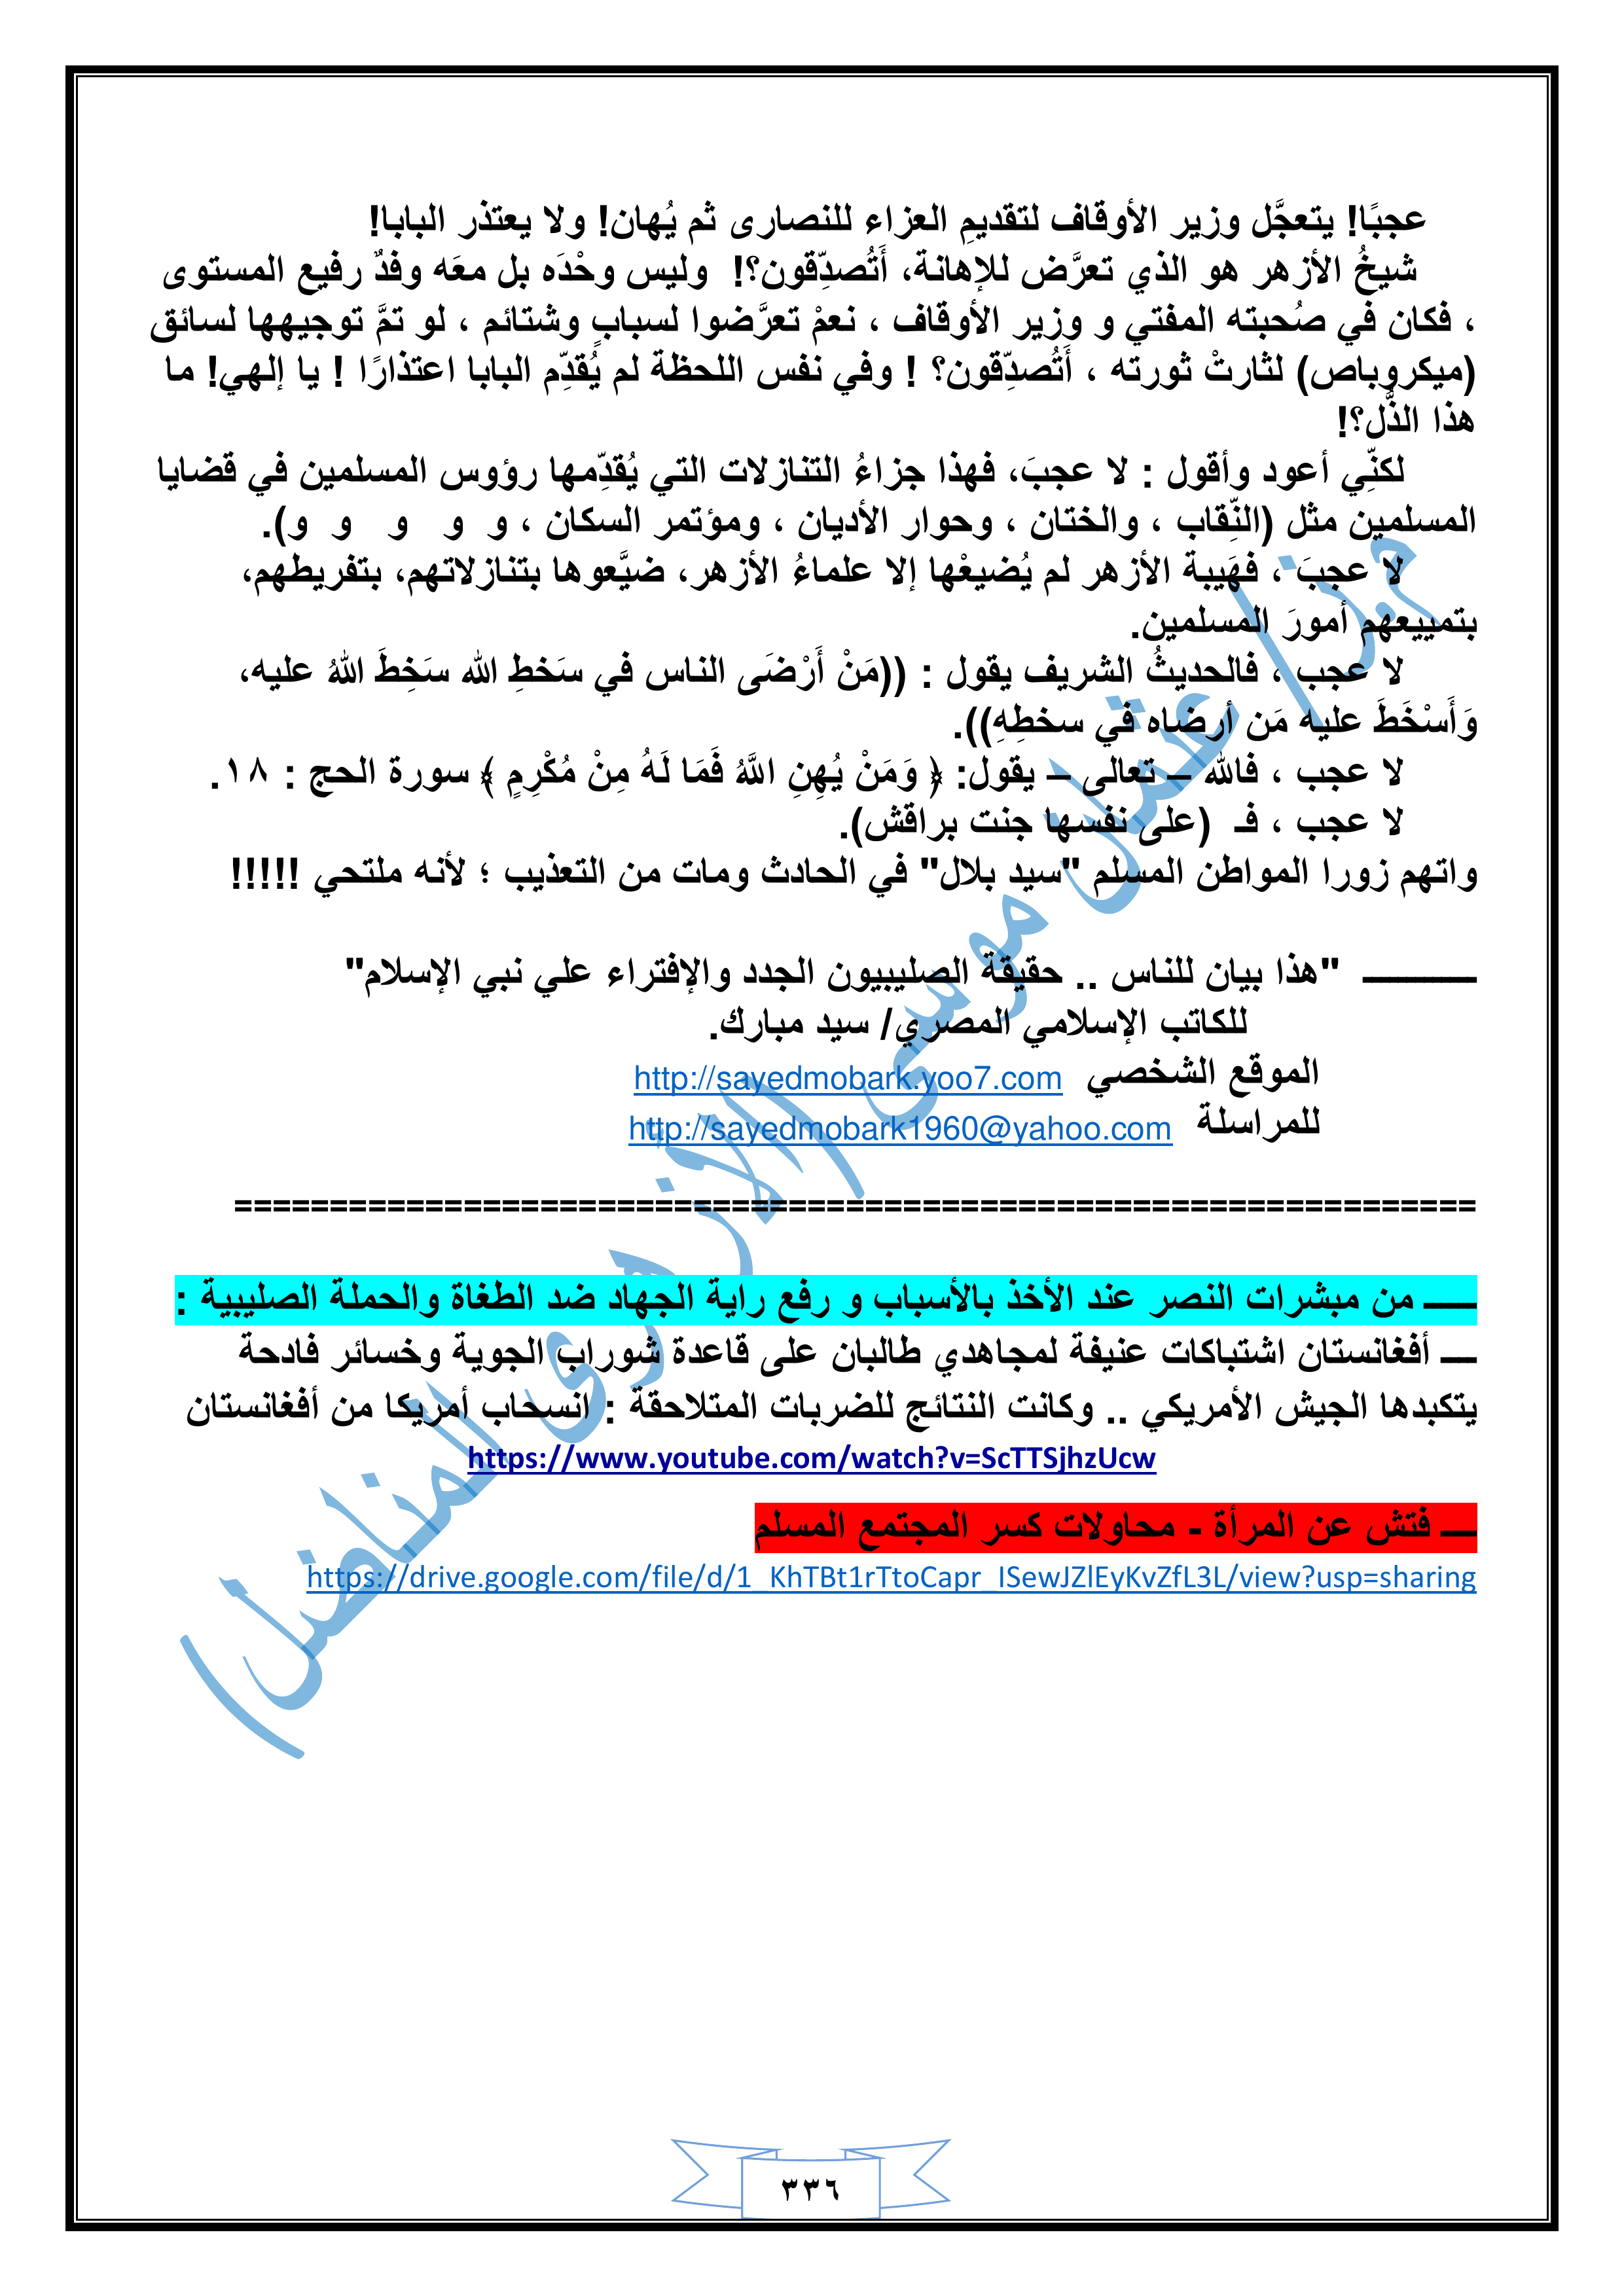 عجبًا! يتعجَّل وزير الأوقاف لتقديمِ العزاء للنصارى ثم يُهان! ولا يعتذر البابا!
شيخُ الأزهر هو الذي تعرَّض للإهانة، أَتُصدِّقون؟! وليس وحْدَه بل معَه وفدٌ رفيع المستوى
، فكان في صُحبته المفتي و وزير الأوقاف ، نعمْ تعرَّضوا لسبابٍ وشتائم ، لو تمَّ توجيهها لسائق
(ميكروباص) لثارتْ ثورته ، أَتُصدِّقون؟ ! وفي نفس اللحظة لم يُقدِّم البابا اعتذارًا ! يا إلهي! ما
هذا الذُّل؟!
لكنِّي أعود وأقول : لا عجبَ، فهذا جزاءُ التنازلات التي يُقدِّمها رؤوس المسلمين في قضايا
المسلمين مثل (النِّقاب ، والختان ، وحوار الأديان ، ومؤتمر السكان ، و و و و و).
لا عجبَ ، فهَيبة الأزهر لم يُضيعْها إلا علماءُ الأزهر، ضيَّعوها بتنازلاتهم، بتفريطهم،
بتمييعهم أمورَ المسلمين.
لا عجب ، فالحديثُ الشريف يقول : ((مَنْ أَرْضَى الناس في سَخطِ الله سَخِطَ اللهُ عليه،
وَأَسْخَطَ عليه مَن أرضاه في سخطِهِ)).
لا عجب ، فالله – تعالى – يقول: ﴿ وَمَنْ يُهِنِ اللَّهُ فَمَا لَهُ مِنْ مُكْرِمٍ ﴾ سورة الحج : ١٨.
لا عجب ، فـ (على نفسها جنت براقش).
واتهم زورا المواطن المسلم "سيد بلال" في الحادث ومات من التعذيب ؛ لأنه ملتحي !!!!!
ـــــــــــــ "هذا بيان للناس .. حقيقة الصليبيون الجدد والإفتراء علي نبي الإسلام"
للكاتب الإسلامي المصري/ سيد مبارك.
الموقع الشخصي http://sayedmobark.yoo7.com
للمراسلة http://sayedmobark1960@yahoo.com
=================================================================
ــــــ من مبشرات النصر عند الأخذ بالأسباب و رفع راية الجهاد ضد الطغاة والحملة الصليبية :
ــــ أفغانستان اشتباكات عنيفة لمجاهدي طالبان على قاعدة شوراب الجوية وخسائر فادحة
يتكبدها الجيش الأمريكي .. وكانت النتائج للضربات المتلاحقة : انسحاب أمريكا من أفغانستان
https://www.youtube.com/watch?v=ScTTSjhzUcw
ــــ فتش عن المرأة - محاولات كسر المجتمع المسلم
https://drive.google.com/file/d/1_KhTBt1rTtoCapr_ISewJZlEyKvZfL3L/view?usp=sharing
٣٣٦